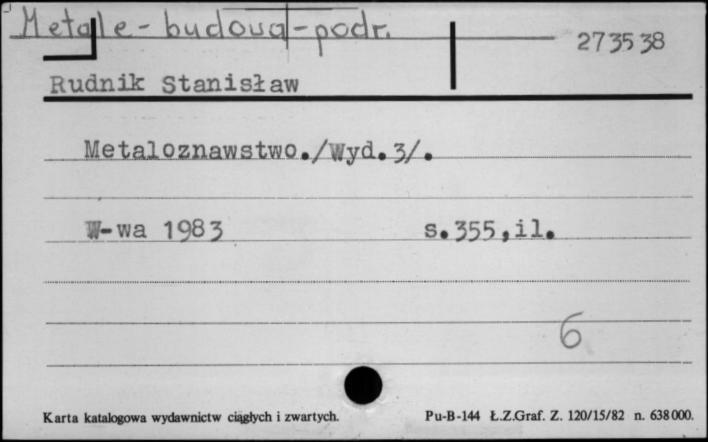 Metale - budowa - podr.
273538
Rudnik Stanisław
Metaloznawstwo./Wyd.3/.
W-wa 1983 s.355,il.
6
Karta katalogowa wydawnictw ciągłych i zwartych. Pu-B-144 Ł.Z.Graf. Z. 120/15/82 n. 638000.